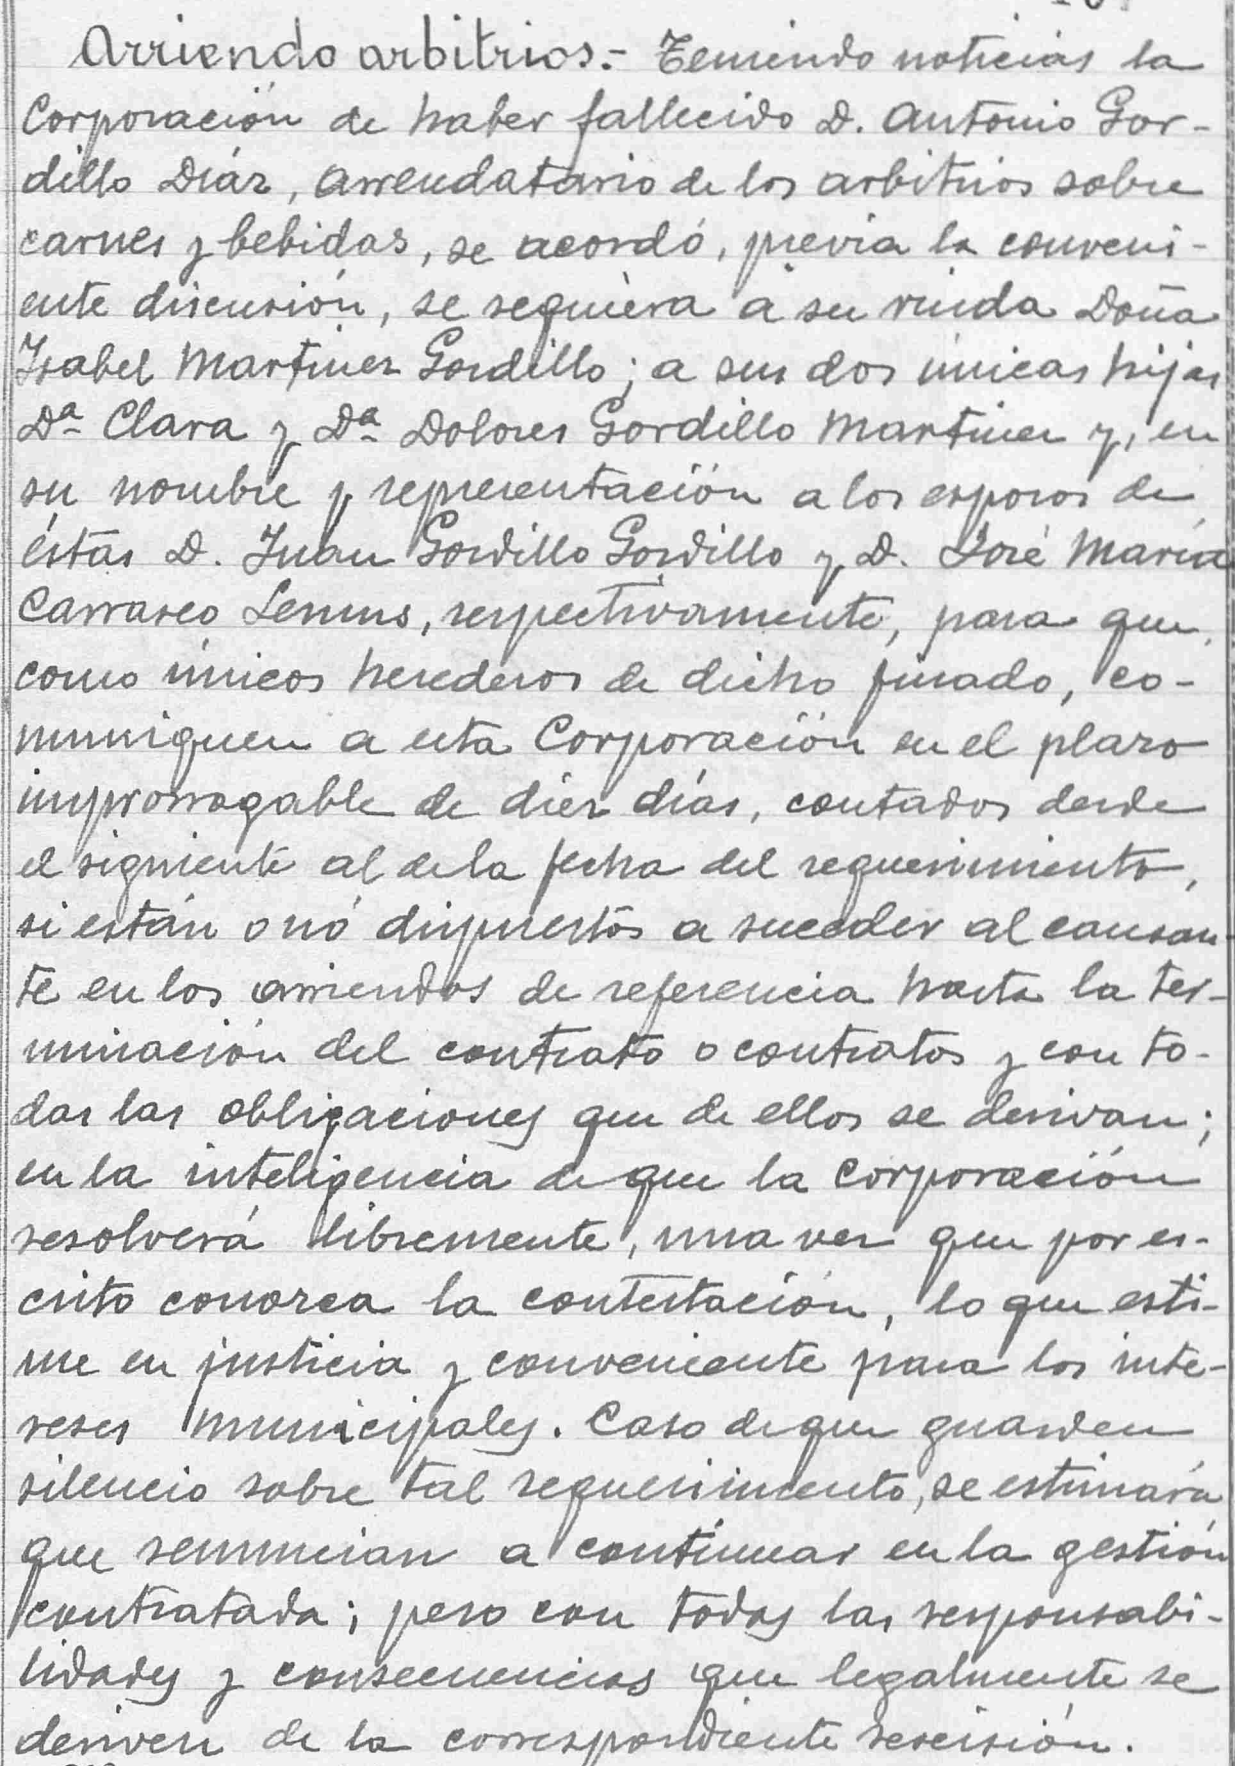 Arriendo arbitrios.- Teniendo noticias la
Corporación de haber fallecido D. Antonio Gor-
dillo Díaz, arrendatario de los arbitrios sobre
carnes y bebidas, se acordó, previa la conveni-
ente discusión, se requiera a su viuda Doña
Isabel Martinez Gordillo; a sus dos únicas hijas
Dª Clara y Dª Dolores Gordillo Martinez y, en
su nombre y representación a los esposos de
éstas D. Juan Gordillo Gordillo y D. José María
Carrasco Lemus, respectivamente, para que
como únicos herederos de dicho finado, co-
muniquen a esta Corporación en el plazo
improrrogable de diez días, contados desde
el siguiente al de la fecha del requerimiento,
si están o nó dispuestos a suceder al causan-
te en los arriendos de referencia hasta la ter-
minación del contrato o contratos y con to-
das las obligaciones que de ellos se derivan;
en la inteligencia de que la Corporación
resolverá libremente, una vez que por es-
crito conozca la contestación, lo que esti-
me en justicia y conveniente para los inte-
reses municipales. Caso de que guarden
silencio sobre tal requerimiento, se estimará
que renuncian a continuar en la gestión
contratada; pero con todas las responsabi-
lidades y consecuencias que legalmente se
deriven de la correspondiente rescisión.